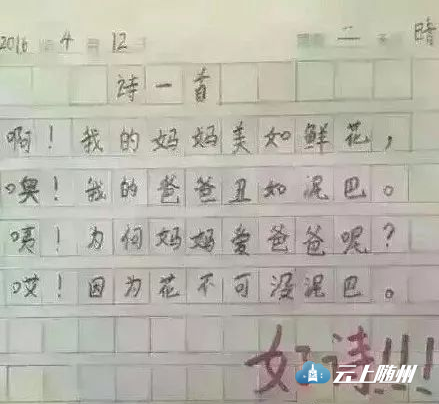 2016 年 4 月 12 日 星期 二 天气 晴
诗一首
啊！我的妈妈美如鲜花，
噢！我的爸爸丑如泥巴。
咦！为何妈妈爱爸爸呢？
哎！因为花不可没泥巴。
好诗!!!
云上随州